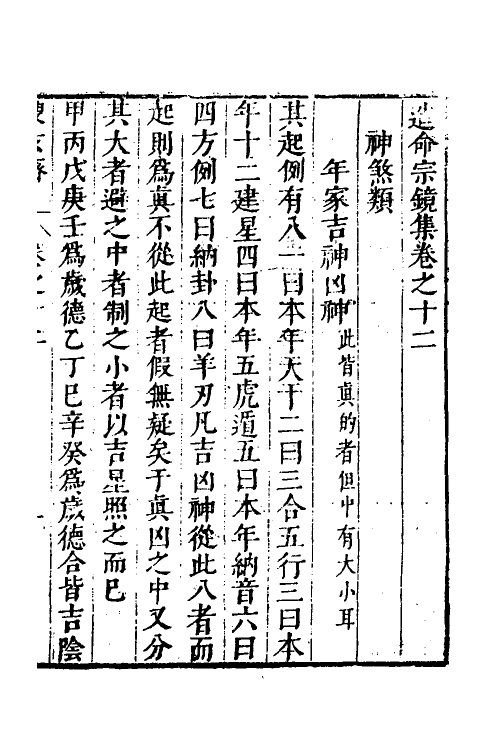 造命宗鏡集卷之十二
神煞類
年家吉神凶神此皆真的者但中有大小耳
其起例有八一曰本年天干二曰三合五行三曰本
年十二建星四曰本年五虎遁五曰本年納音六曰
四方例七曰納卦八曰羊刃凡吉凶神從此八者而
起則爲真不從此起者假無疑矣于真凶之中又分
其大者避之中者制之小者以吉星照之而巳
甲丙戊庚壬爲歲德乙丁巳辛癸爲歲德合皆吉陰